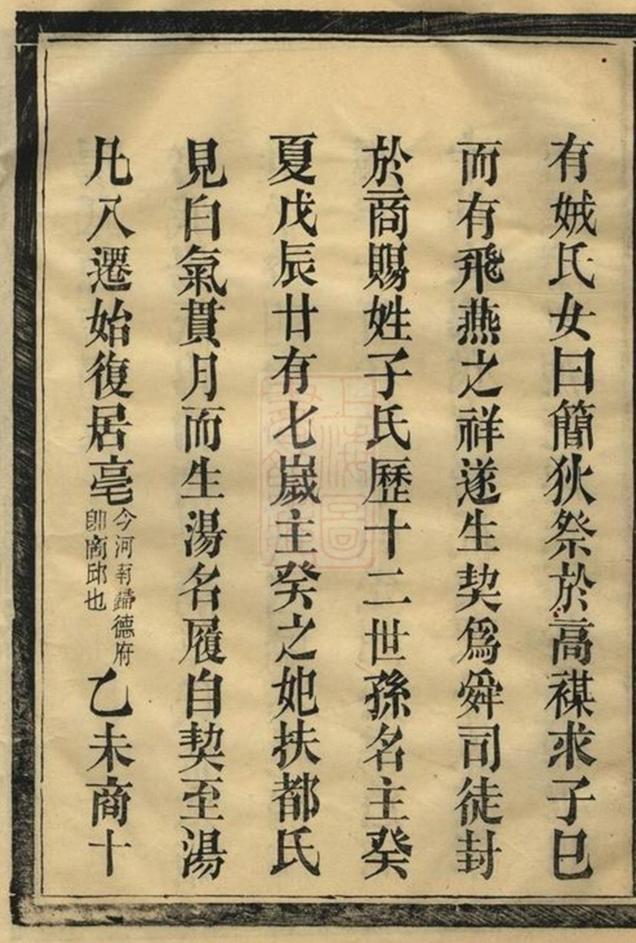 有娀氏女曰簡狄祭於高禖求子巳
而有飛燕之祥遂生契爲舜司徒封
於商賜姓子氏歷十二世孫名主癸
夏戊辰廿有七嵗主癸之妃扶都氏
見白氣貫月而生湯名履自契至湯
凡八遷始復居亳今河南歸德府即商邱也乙未商十